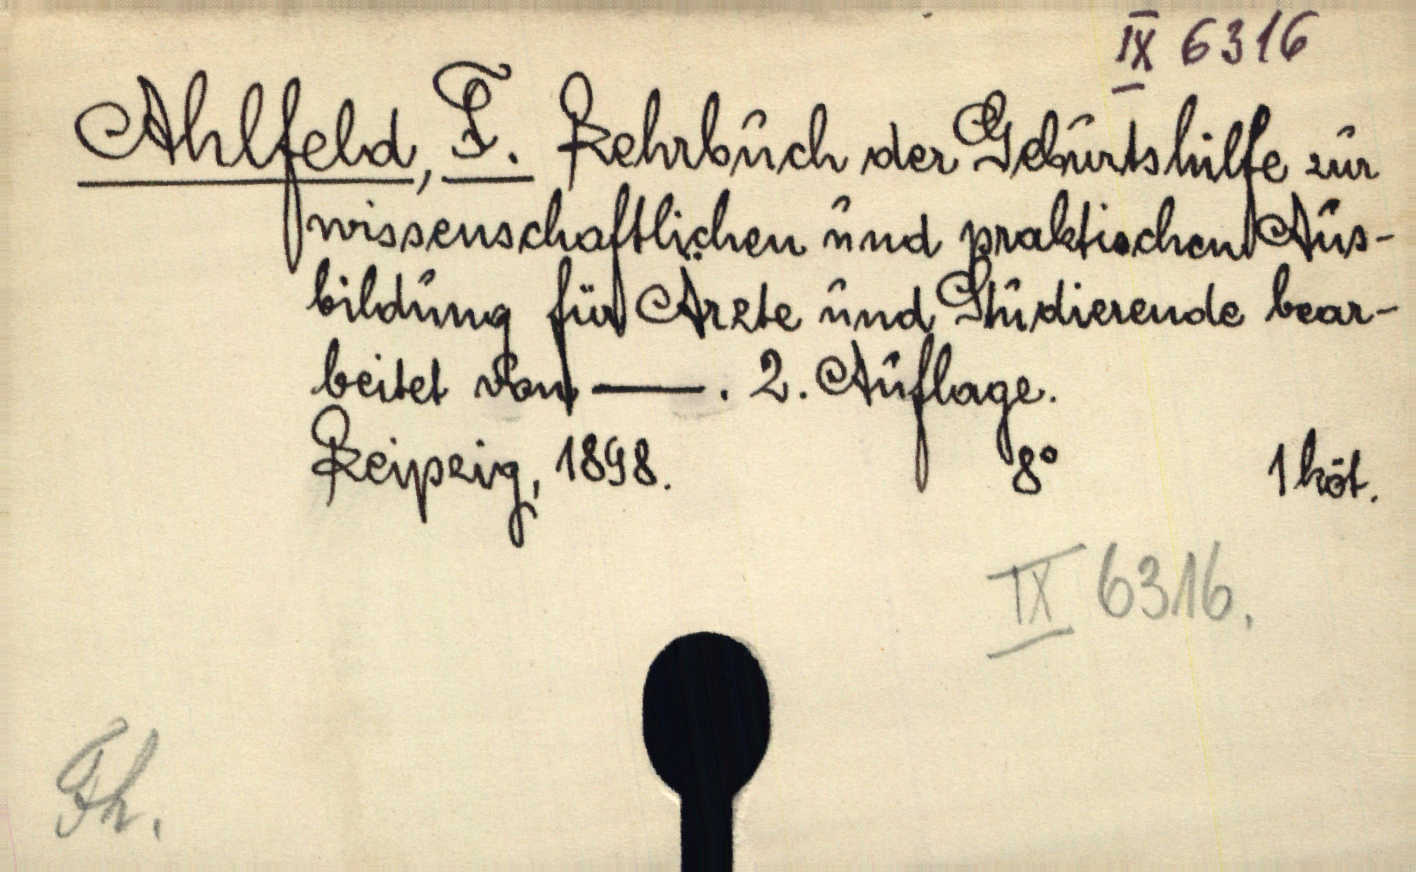 IX 6316
Ahlfeld, F. Lehrbuch der Geburtshilfe zur
wissenschaftlichen und praktischen Aus-
bildung für Ärzte und Studierende bear-
beitet von —. 2. Auflage.
Leipzig, 1898. 8° 1 köt.
IX 6316.
Fh.